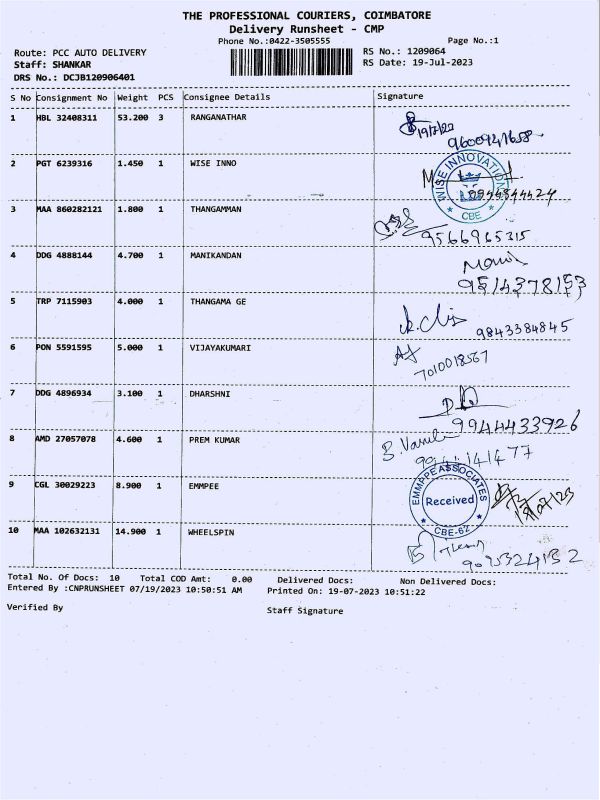 THE PROFESSIONAL COURIERS, COIMBATORE
Delivery Runsheet - CMP
Phone No.:0422-3505555
Page No.:1
Route: PCC AUTO DELIVERY
RS No.: 1209064
Staff: SHANKAR
RS Date: 19-Jul-2023
DRS No.: DCJB120906401
S No Consignment No Weight PCS Consignee Details Signature
1 HBL 32408311 53.200 3 RANGANATHAR
19/7/23
2 PGT 6239316 1.450 1 WISE INNO
WISE INNOVATION
CBE
3 MAA 860282121 1.800 1 THANGAMMAN
9566965315
4 DDG 4888144 4.700 1 MANIKANDAN
9514378153
5 TRP 7115903 4.000 1 THANGAMA GE
9843384845
6 PON 5591595 5.000 1 VIJAYAKUMARI
7010018567
7 DDG 4896934 3.100 1 DHARSHNI
9944433926
8 AMD 27057078 4.600 1 PREM KUMAR
9 CGL 30029223 8.900 1 EMMPEE
EMMPEE ASSOCIATES
Received
CBE-62
10 MAA 102632131 14.900 1 WHEELSPIN
Total No. Of Docs: 10 Total COD Amt: 0.00 Delivered Docs: Non Delivered Docs:
Entered By :CNPRUNSHEET 07/19/2023 10:50:51 AM Printed On: 19-07-2023 10:51:22
Verified By Staff Signature